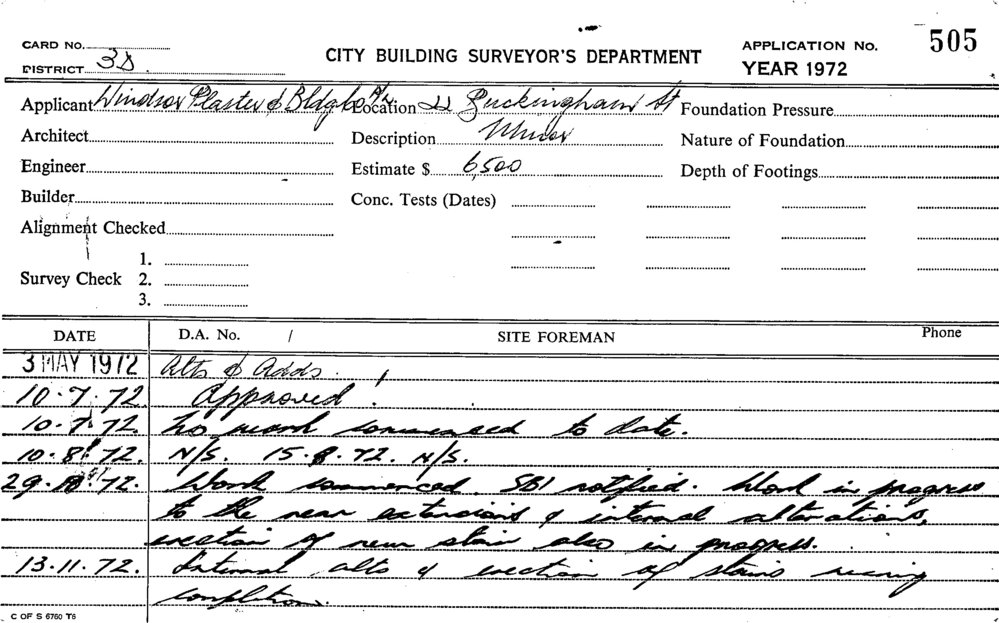 CARD No. CITY BUILDING SURVEYOR'S DEPARTMENT APPLICATION No. 505
DISTRICT 3D. YEAR 1972
Applicant Windsor Plaster & Bldg Co P/L Location 22 Buckingham St Foundation Pressure
Architect Description Nature of Foundation
Engineer Estimate $ 6,500 Depth of Footings
Builder Conc. Tests (Dates)
Alignment Checked
1.
Survey Check 2.
3.
DATE D.A. No. / SITE FOREMAN Phone
3 MAY 1972 Alts & Adds.
10.7.72 Approved.
10.7.72. No work commenced to date.
10.8.72. N/S. 15.9.72. N/S.
29. .72. Work commenced. SBI notified. Work in progress
to the rear extensions & internal alterations,
erection of new stair also in progress.
13.11.72. Internal alts & erection of stairs nearing
completion.
C OF S 6760 T6